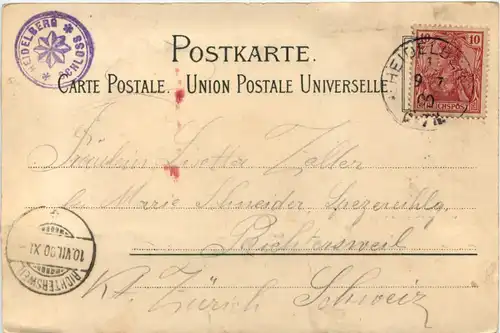 HEIDELBERG SCHLOSS
POSTKARTE.
CARTE POSTALE. UNION POSTALE UNIVERSELLE.
10 10
REICHSPOST
HEIDELB
9 7
00
Fräulein Lisette Zeller
Marie Schneider Spezereihlg.
Richtersweil
Kt. Zürich Schweiz
10.VII.00.XI
RICHTERSWEIL